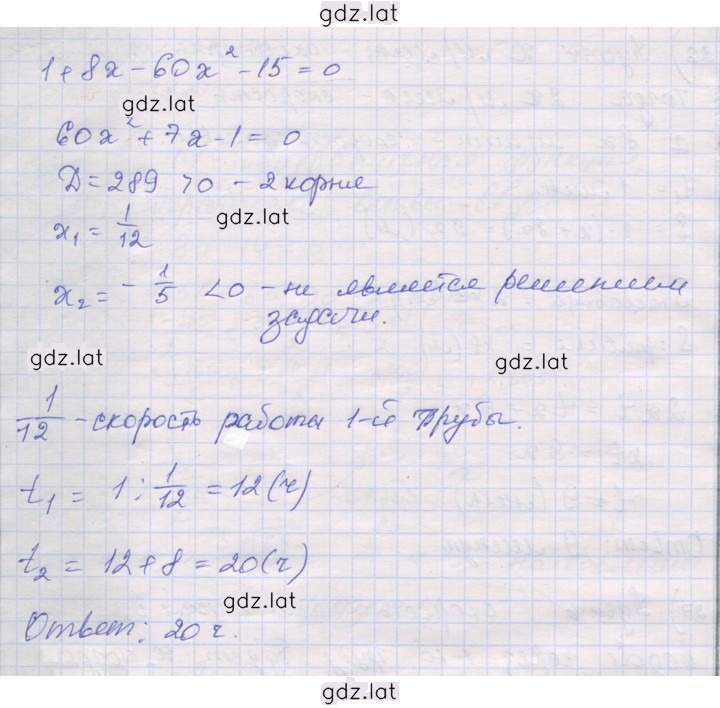 gdz.lat
1 + 8x - 60x² - 15 = 0
gdz.lat
60x² + 7x - 1 = 0
D = 289 > 0 - 2 корня
gdz.lat
x₁ = 1/12
x₂ = - 1/5 < 0 - не является решением
задачи.
gdz.lat
1/12 - скорость работы 1-й трубы.
t₁ = 1 : 1/12 = 12 (ч)
t₂ = 12 + 8 = 20 (ч)
gdz.lat
Ответ: 20 ч.
gdz.lat